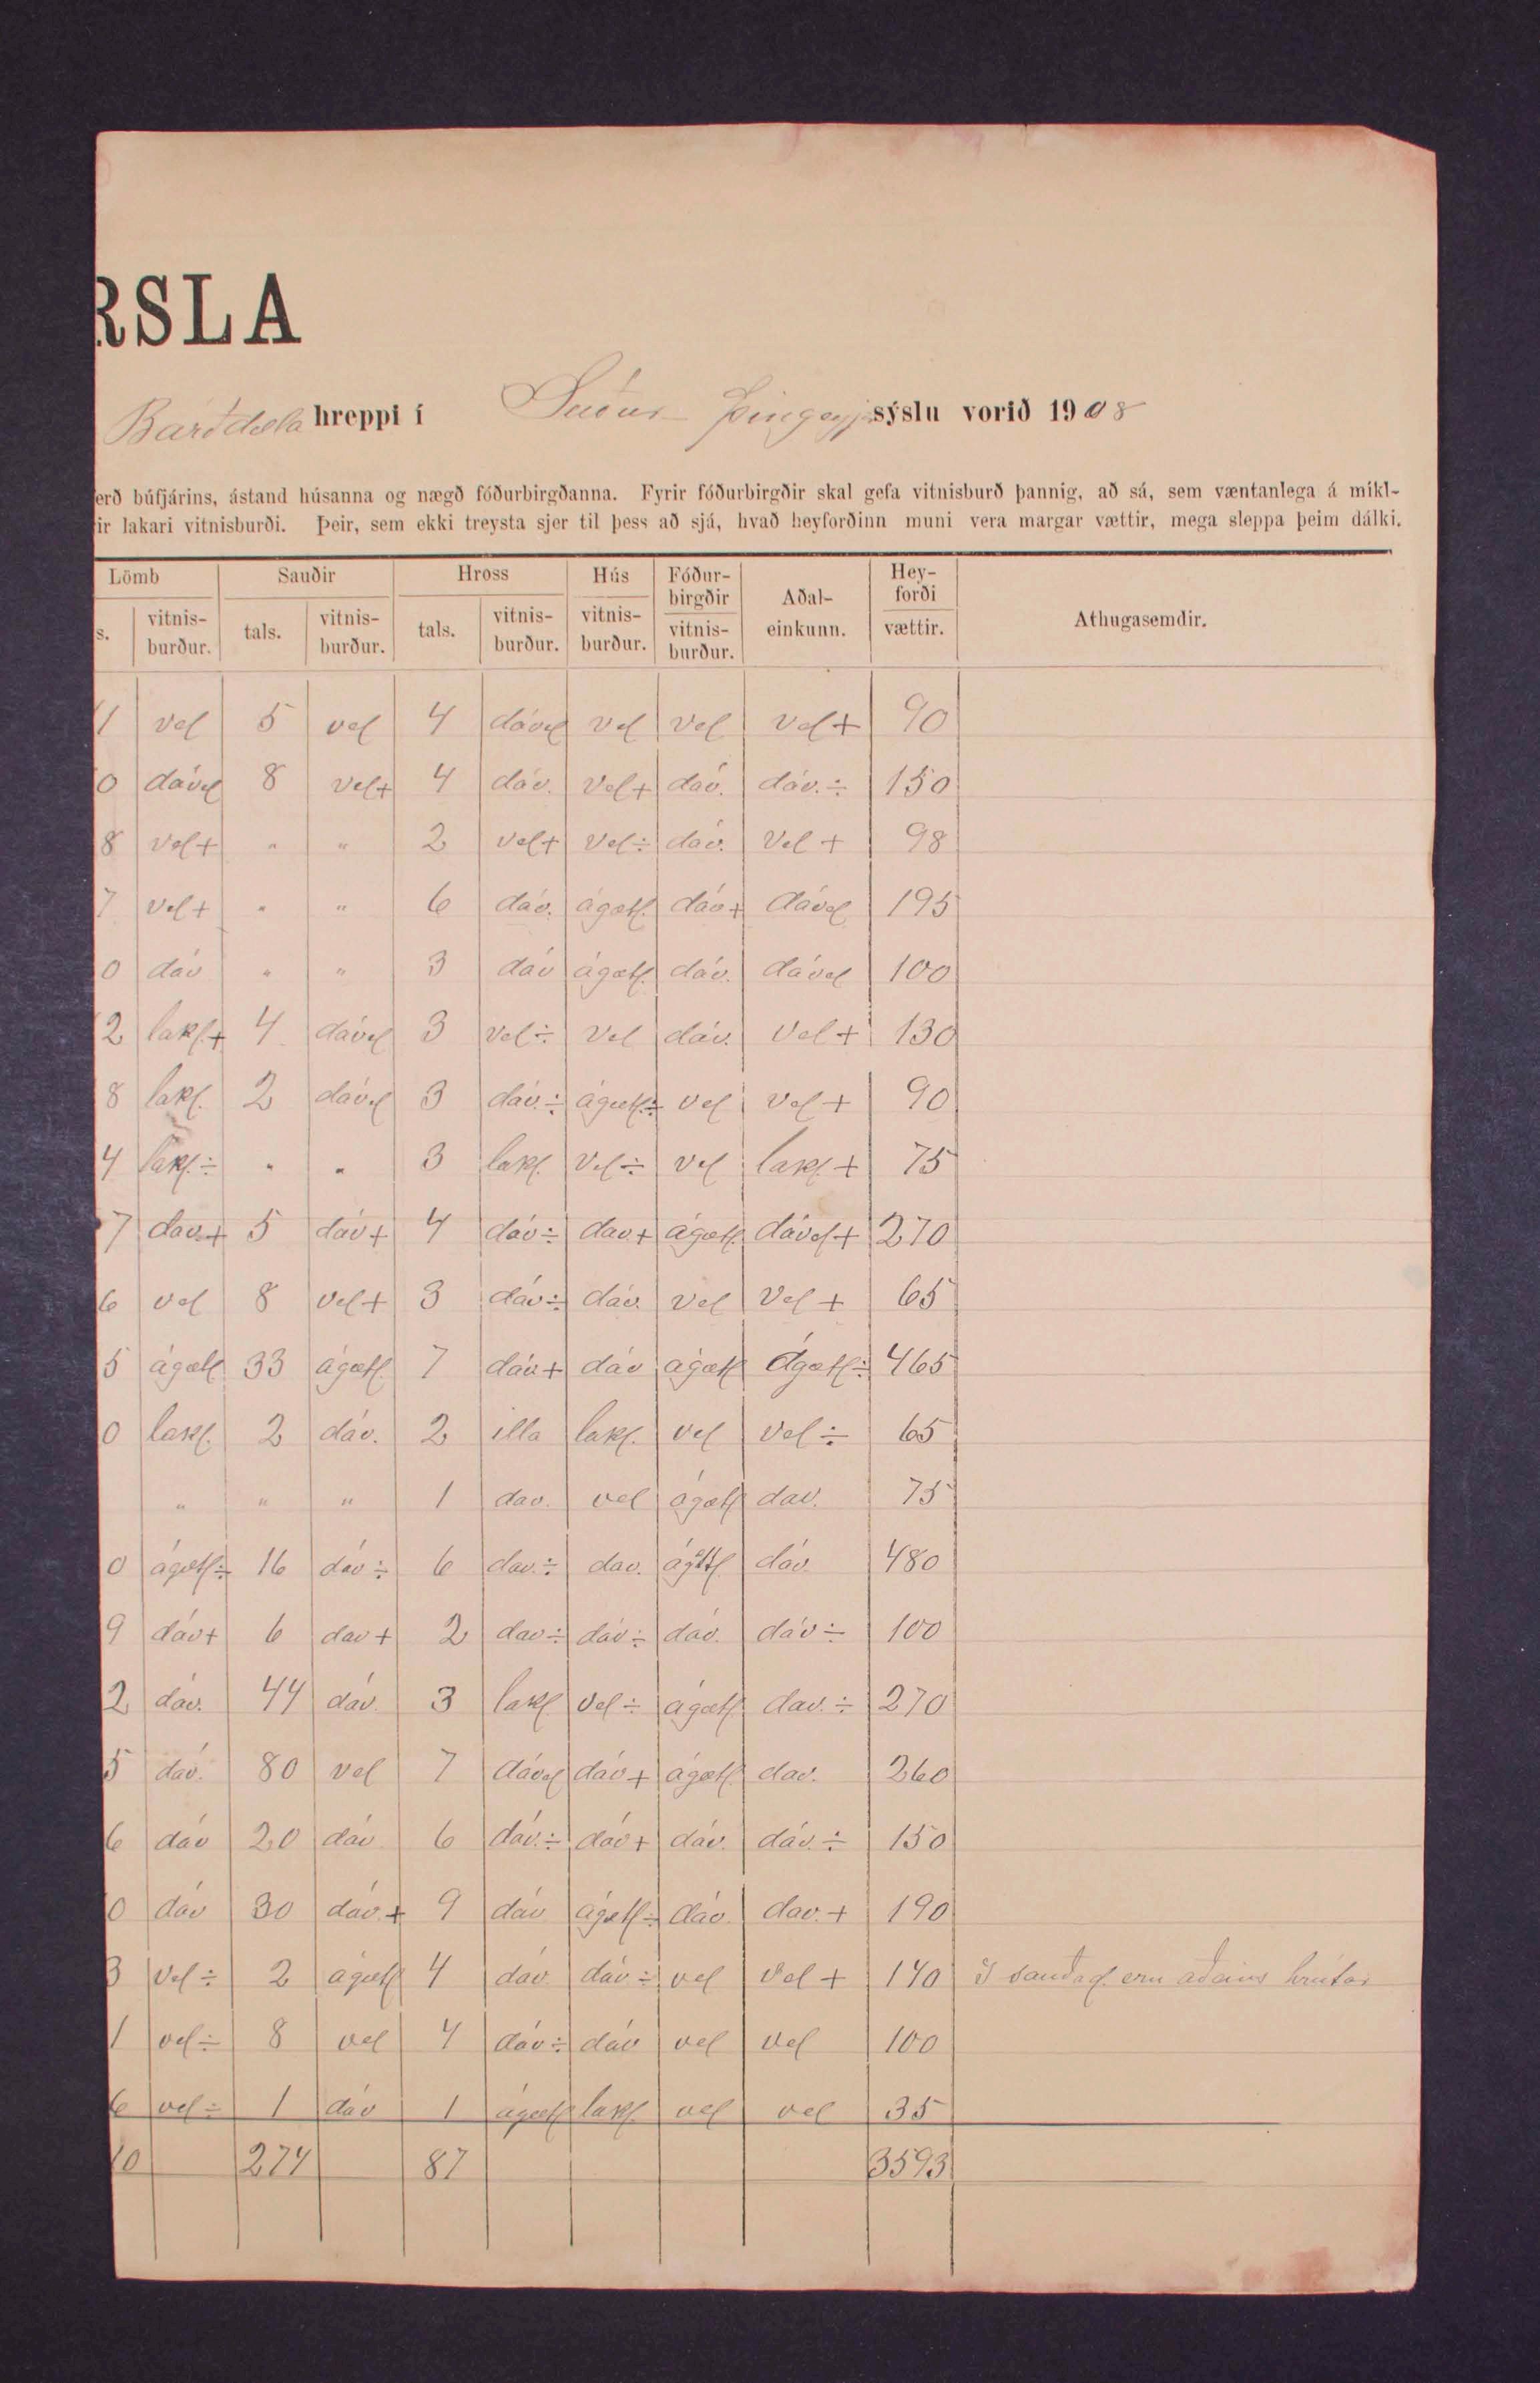 RSLA
Bárðdæla hreppi í Suður Þingeyjar sýslu vorið 1908
erð búfjárins, ástand húsanna og nægð fóðurbirgðanna. Fyrir fóðurbirgðir skal gefa vitnisburð þannig, að sá, sem væntanlega á mikl-
ir lakari vitnisburði. Þeir, sem ekki treysta sjer til þess að sjá, hvað heyforðinn muni vera margar vættir, mega sleppa þeim dálki.
Lömb Sauðir Hross Hús Fóður-birgðir Aðal-einkunn. Hey-forði Athugasemdir.
s. vitnis-burður. tals. vitnis-burður. tals. vitnis-burður. vitnis-burður. vitnis-burður. vættir.
1 vel 5 vel 4 dável vel vel vel+ 90
0 dável 8 vel+ 4 dáv. vel+ dáv. dáv.÷ 150
8 vel+ " " 2 vel+ vel÷ dáv. vel+ 98
7 vel+ " " 6 dáv. ágætl. dáv+ dável 195
0 dáv " " 3 dáv ágætl. dáv. dável 100
2 lakl.+ 4 dável 3 vel÷ vel dáv. vel+ 130
8 lakl. 2 dável 3 dáv.÷ ágætl.÷ vel vel+ 90
4 lakl.÷ " " 3 lakl. vel÷ vel lakl.+ 75
7 dav.+ 5 dáv+ 4 dáv÷ dav+ ágætl. dável+ 270
6 vel 8 vel+ 3 dáv÷ dáv. vel vel+ 65
5 ágætl 33 ágætl. 7 dáv+ dáv ágætl ágætl÷ 465
0 lakl. 2 dáv. 2 illa lakl. vel vel÷ 65
" " " 1 dav. vel ágætl dav. 75
0 ágætl÷ 16 dáv÷ 6 dav.÷ dav. ágætl dáv. 480
9 dáv+ 6 dav+ 2 dav÷ dáv÷ dáv. dáv÷ 100
2 dáv. 44 dáv. 3 lakl vel÷ ágætl. dav.÷ 270
5 dáv. 80 vel 7 dável dáv+ ágætl. dav. 260
6 dáv 20 dáv 6 dáv.÷ dáv+ dáv. dáv.÷ 150
0 dáv 30 dáv.+ 9 dáv ágætl÷ dáv. dav.+ 190
3 vel÷ 2 ágætl 4 dáv. dáv÷ vel vel+ 140 Í sauðad. eru aðeins hrútar
1 vel÷ 8 vel 4 dáv÷ dáv vel vel 100
6 vel÷ 1 dáv 1 ágætl lakl. vel vel 35
10 274 87 3593